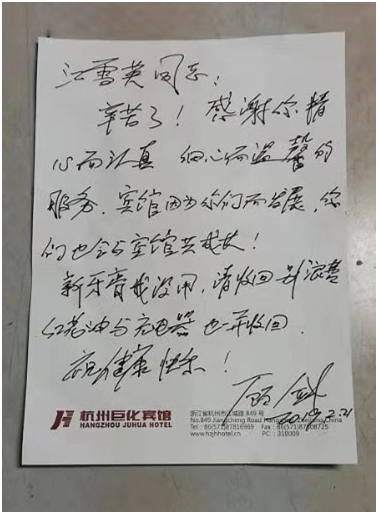 江雪英同志：
辛苦了！感谢你精
心而认真 细心而温馨的
服务，宾馆因为你们而发展，你
们也会与宾馆共成长！
新牙膏我没用，请收回别浪费
红花油与充电器也一并收回
祝健康快乐！
2019.2.21
杭州巨化宾馆
HANGZHOU JUHUA HOTEL
浙江省杭州市江城路 849 号
No.849 Jiangcheng Road Hangzhou China
Tel: 86(571)87816969
www.hzjhhotel.cn PC: 310009